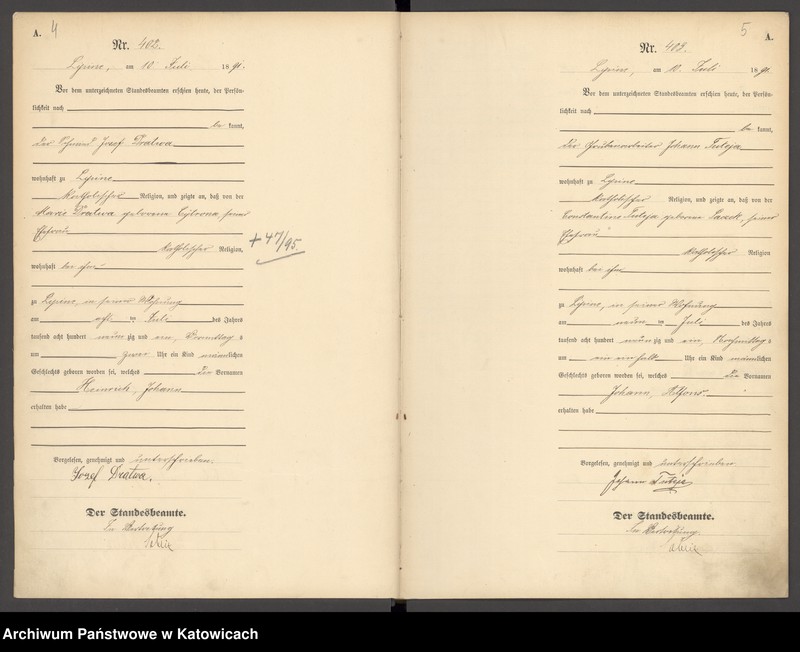 A. 4
Nr. 402.
Lyrine, am 10 Juli 1891.
Vor dem unterzeichneten Standesbeamten erschien heute, der Persön-
lichkeit nach
be kannt,
der Josef Dratwa
wohnhaft zu Lyrine
katholischer Religion, und zeigte an, daß von der
Marie Dratwa geborene seiner
Ehefrau
katholischer Religion,
wohnhaft bei ihm
zu Lyrine, in seiner Wohnung
am ten Juli des Jahres
tausend acht hundert neun zig und ein, Vormittag s
um zwei Uhr ein Kind männlichen
Geschlechts geboren worden sei, welches die Vornamen
Heinrich, Johann
erhalten habe
Vorgelesen, genehmigt und unterschrieben.
Josef Dratwa.
Der Standesbeamte.
In Vertretung
+ 47/95.
5 A.
Nr. 403.
Lyrine, am 10. Juli 1891.
Vor dem unterzeichneten Standesbeamten erschien heute, der Persön-
lichkeit nach
be kannt,
der Grubenarbeiter Johann Tuleja
wohnhaft zu Lyrine
katholischer Religion, und zeigte an, daß von der
Constantine Tuleja geborene seiner
Ehefrau
katholischer Religion
wohnhaft bei ihm
zu Lyrine, in seiner Wohnung
am neun ten Juli des Jahres
tausend acht hundert neun zig und ein, Nachmittag s
um ein ein halb Uhr ein Kind männlichen
Geschlechts geboren worden sei, welches die Vornamen
Johann, Alfons
erhalten habe
Vorgelesen, genehmigt und unterschrieben
Johann Tuleja
Der Standesbeamte.
In Vertretung
Archiwum Państwowe w Katowicach